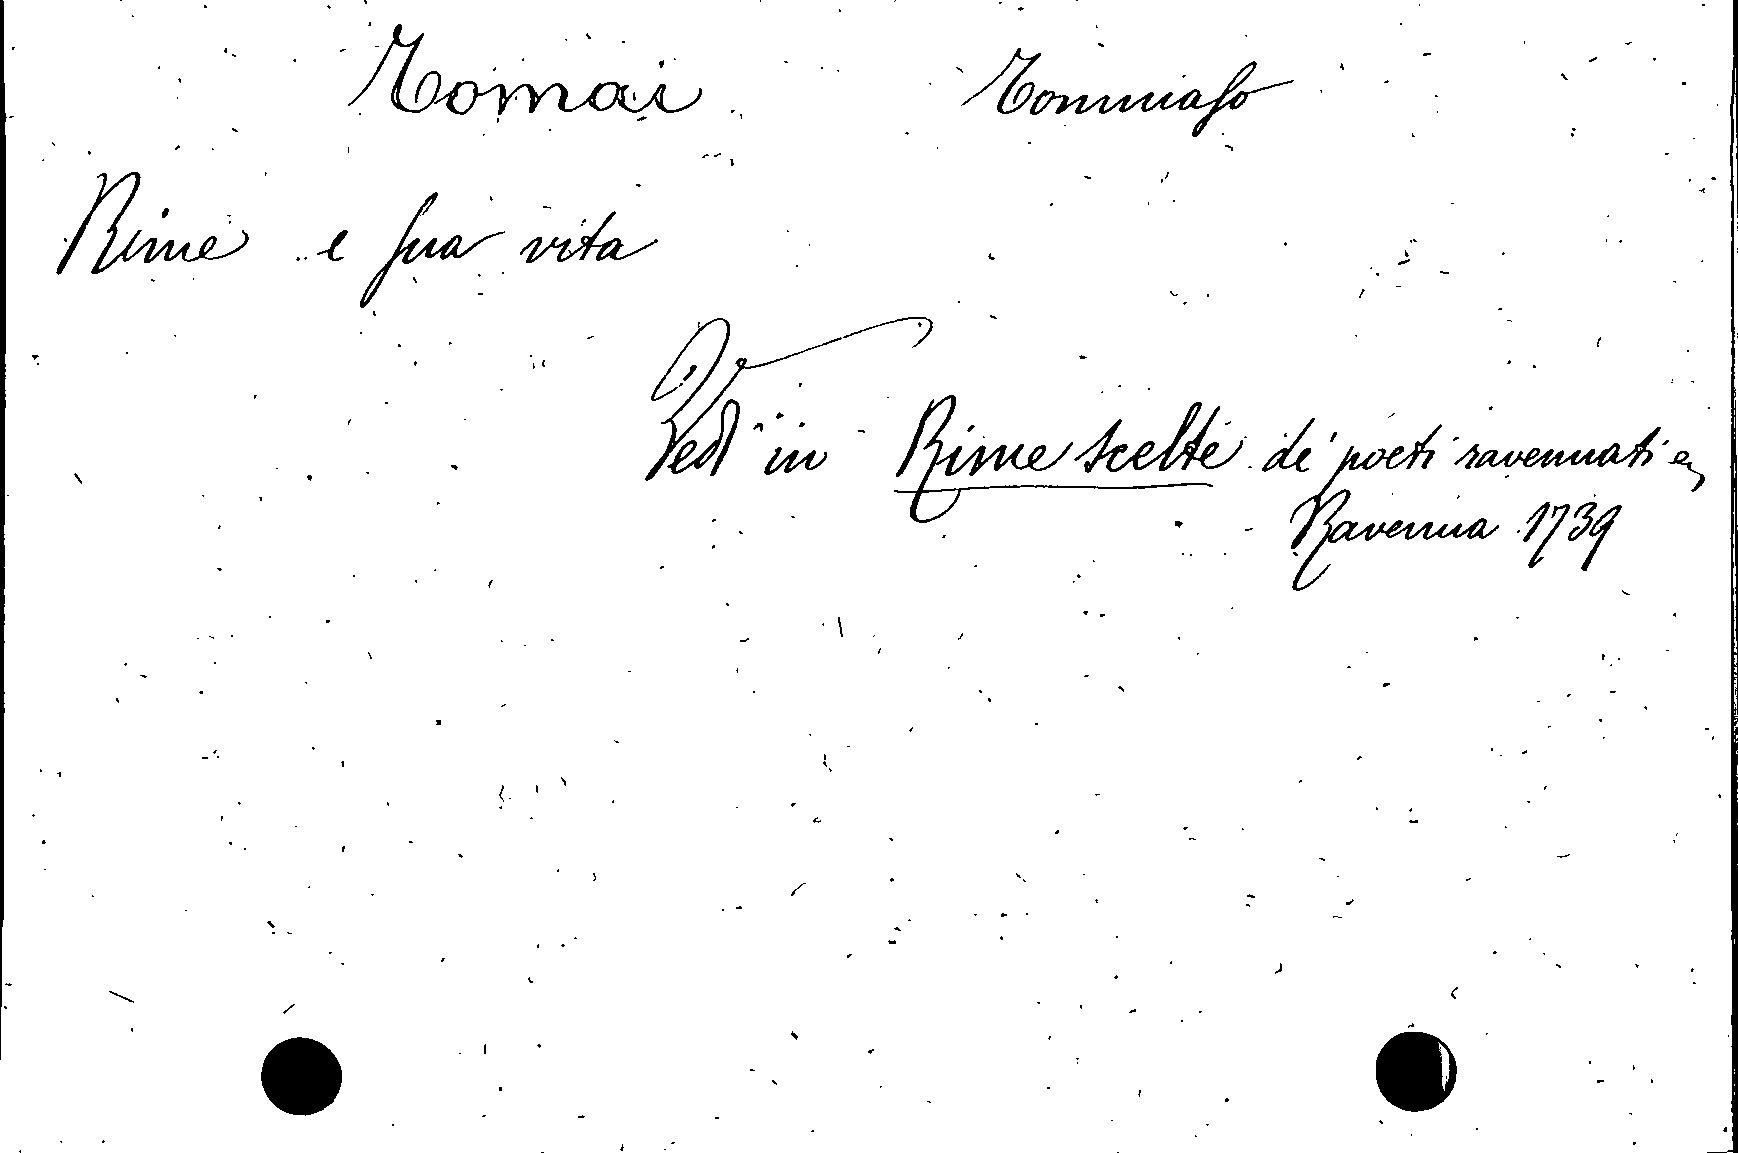 Tomai Tommaso
Rime e sua vita
Vedi in Rime scelte de' poeti ravennati ec,
Ravenna 1739